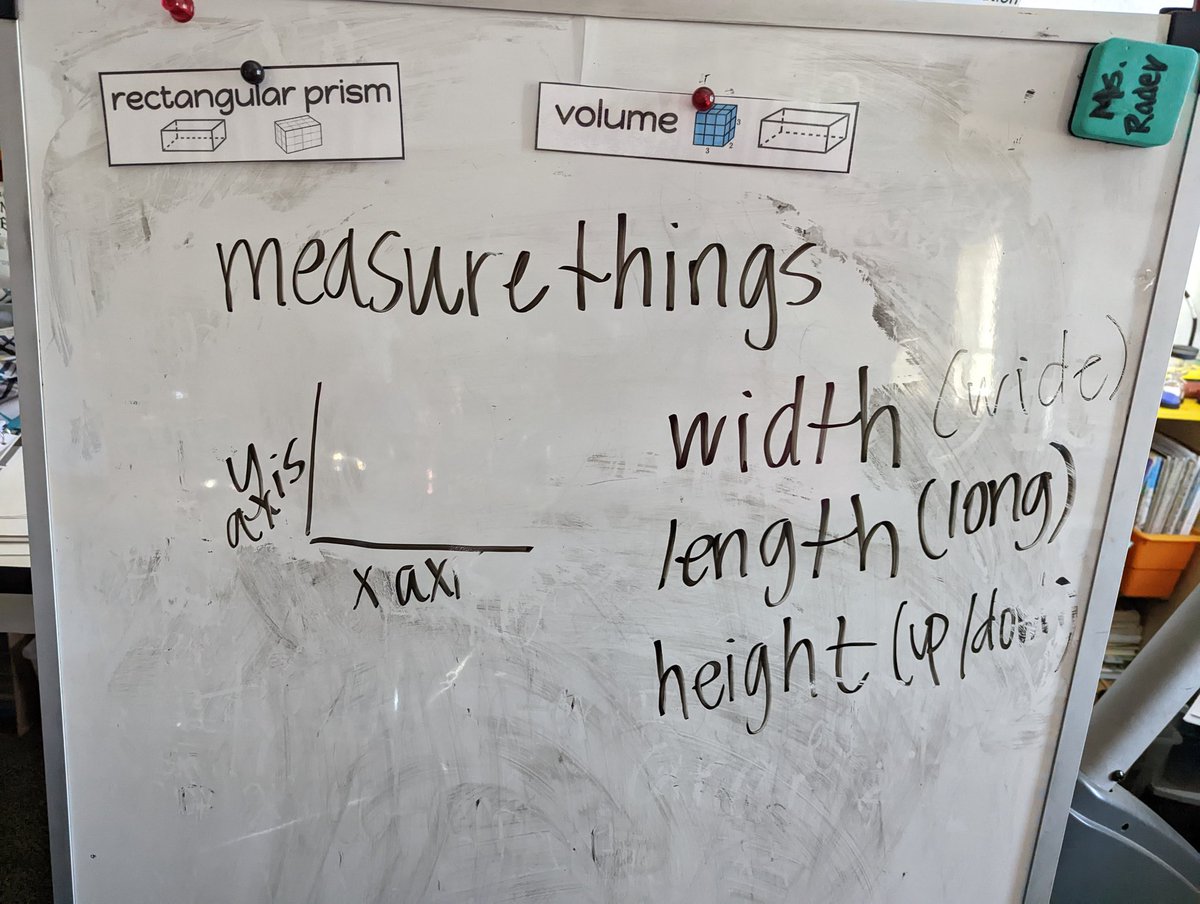 rectangular prism
volume
3
3
2
Ms.
Rader
measure things
y
axis
x axi
width (wide)
length (long)
height (up/down)